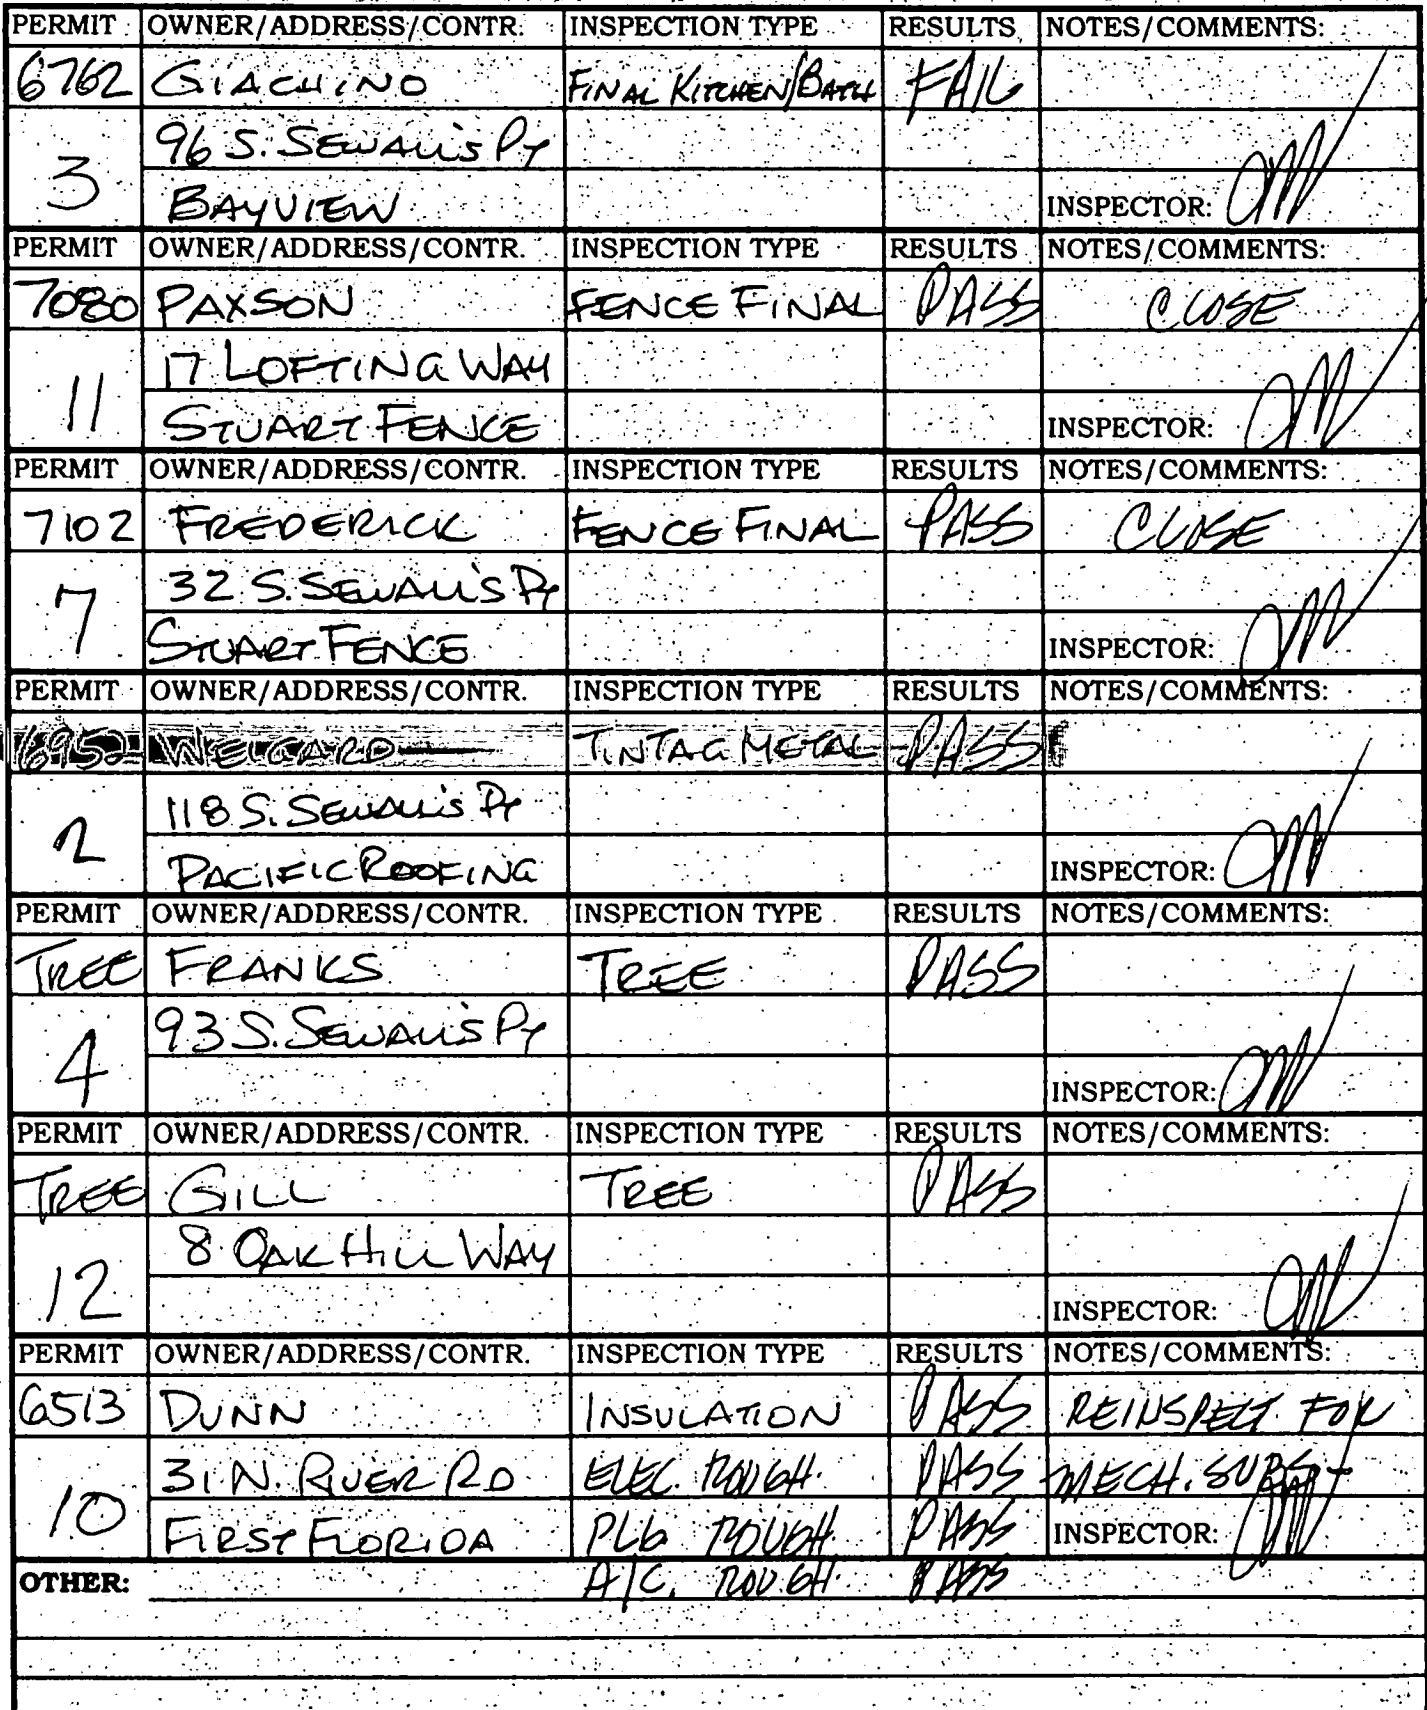 PERMIT OWNER/ADDRESS/CONTR. INSPECTION TYPE RESULTS NOTES/COMMENTS:
6762 GIACHINO FINAL KITCHEN/BATH FAIL
3 96 S. SEWALL'S PT
BAYVIEW INSPECTOR:
PERMIT OWNER/ADDRESS/CONTR. INSPECTION TYPE RESULTS NOTES/COMMENTS:
7080 PAXSON FENCE FINAL PASS CLOSE
11 17 LOFTING WAY
STUART FENCE INSPECTOR:
PERMIT OWNER/ADDRESS/CONTR. INSPECTION TYPE RESULTS NOTES/COMMENTS:
7102 FREDERICK FENCE FINAL PASS CLOSE
7 32 S. SEWALL'S PT
STUART FENCE INSPECTOR:
PERMIT OWNER/ADDRESS/CONTR. INSPECTION TYPE RESULTS NOTES/COMMENTS:
6952 TINTAG METAL PASS
2 118 S. SEWALL'S PT
PACIFIC ROOFING INSPECTOR:
PERMIT OWNER/ADDRESS/CONTR. INSPECTION TYPE RESULTS NOTES/COMMENTS:
TREE FRANKS TREE PASS
4 93 S. SEWALL'S PT
INSPECTOR:
PERMIT OWNER/ADDRESS/CONTR. INSPECTION TYPE RESULTS NOTES/COMMENTS:
TREE GILL TREE PASS
12 8 OAK HILL WAY
INSPECTOR:
PERMIT OWNER/ADDRESS/CONTR. INSPECTION TYPE RESULTS NOTES/COMMENTS:
6513 DUNN INSULATION PASS REINSPECT FOR
10 31 N. RIVER RD ELEC. ROUGH PASS MECH. SUBS
FIRST FLORIDA PLG ROUGH PASS INSPECTOR:
OTHER: A/C. ROUGH PASS